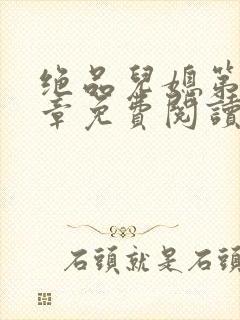 绝品兒媳第
章免費閱讀
石頭就是石頭